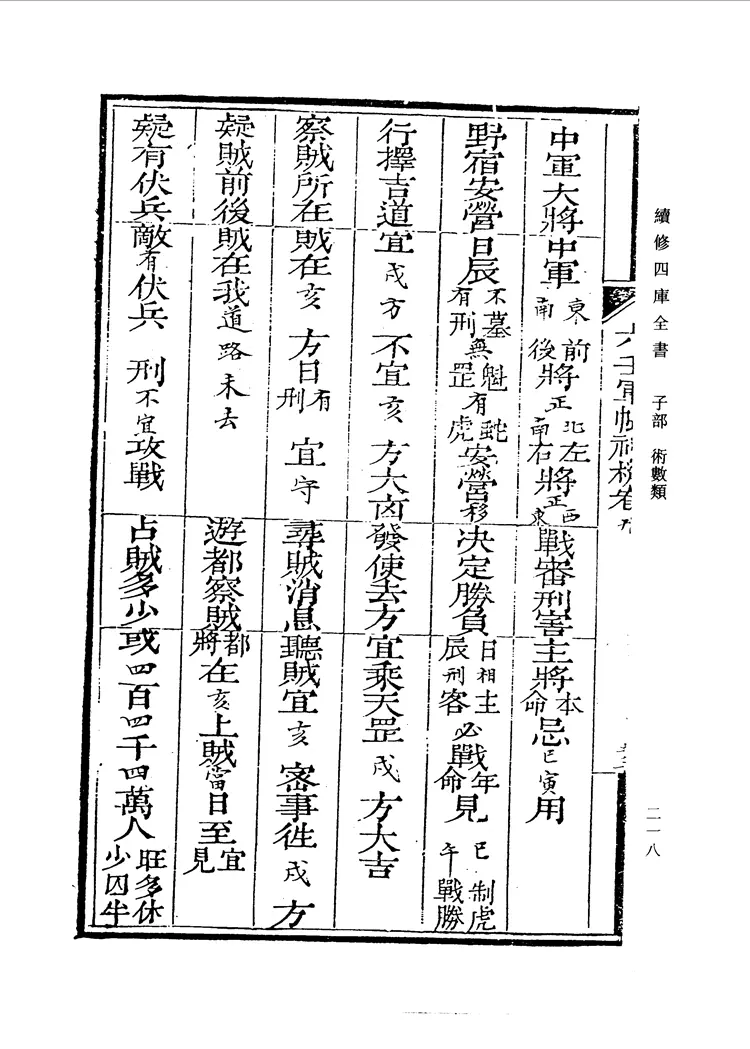 續修四庫全書 子部 術數類
二一八
六壬軍帳神機卷
中軍大將中軍東南前後將正北正南左右將正西正東戰審刑害主將本命忌巳寅用
野宿安營日辰不墓有刑無魁罡有蛇虎安營移決定勝負日相辰刑主客必戰年命見巳午制虎戰勝
行擇吉道宜戌方不宜亥方大凶發使去方宜乘天罡戌方大吉
察賊所在賊在亥方日有刑宜守尋賊消息聽賊宜亥審事徃戌方
疑賊前後賊在我道路未去遊都察賊都將在亥上賊當日至宜見
疑有伏兵敵有伏兵刑不宜攻戰占賊多少或四百四千四萬人旺多休少囚半